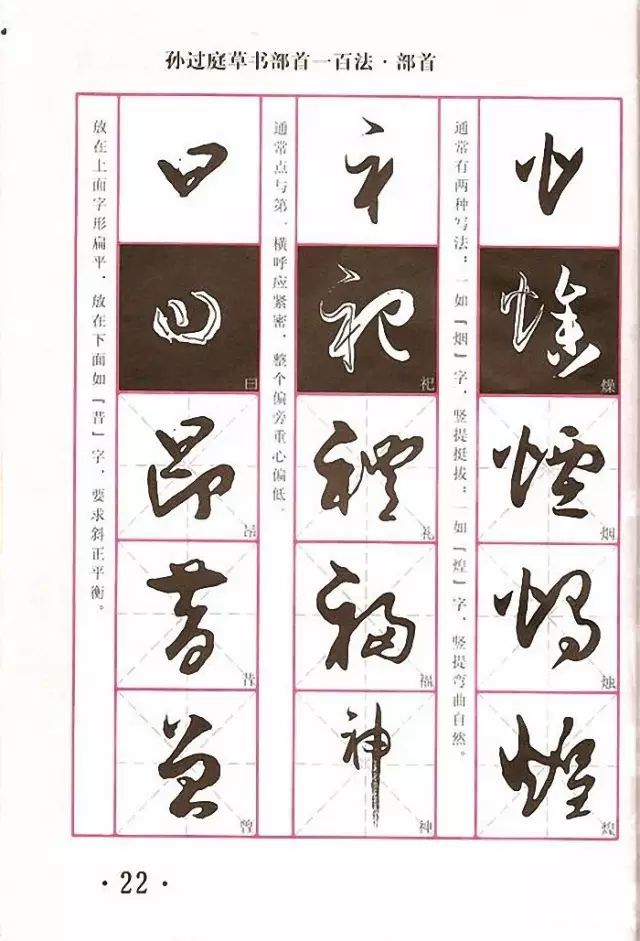 孙过庭草书部首一百法·部首
通常有两种写法：一如『烟』字，竖提挺拔；一如『煌』字，竖提弯曲自然。
火
燥
烟
烛
煌
通常点与第一横呼应紧密，整个偏旁重心偏低。
礻
祀
礼
福
神
放在上面字形扁平，放在下面如『昔』字，要求斜正平衡。
日
曰
昂
昔
曾
·22·